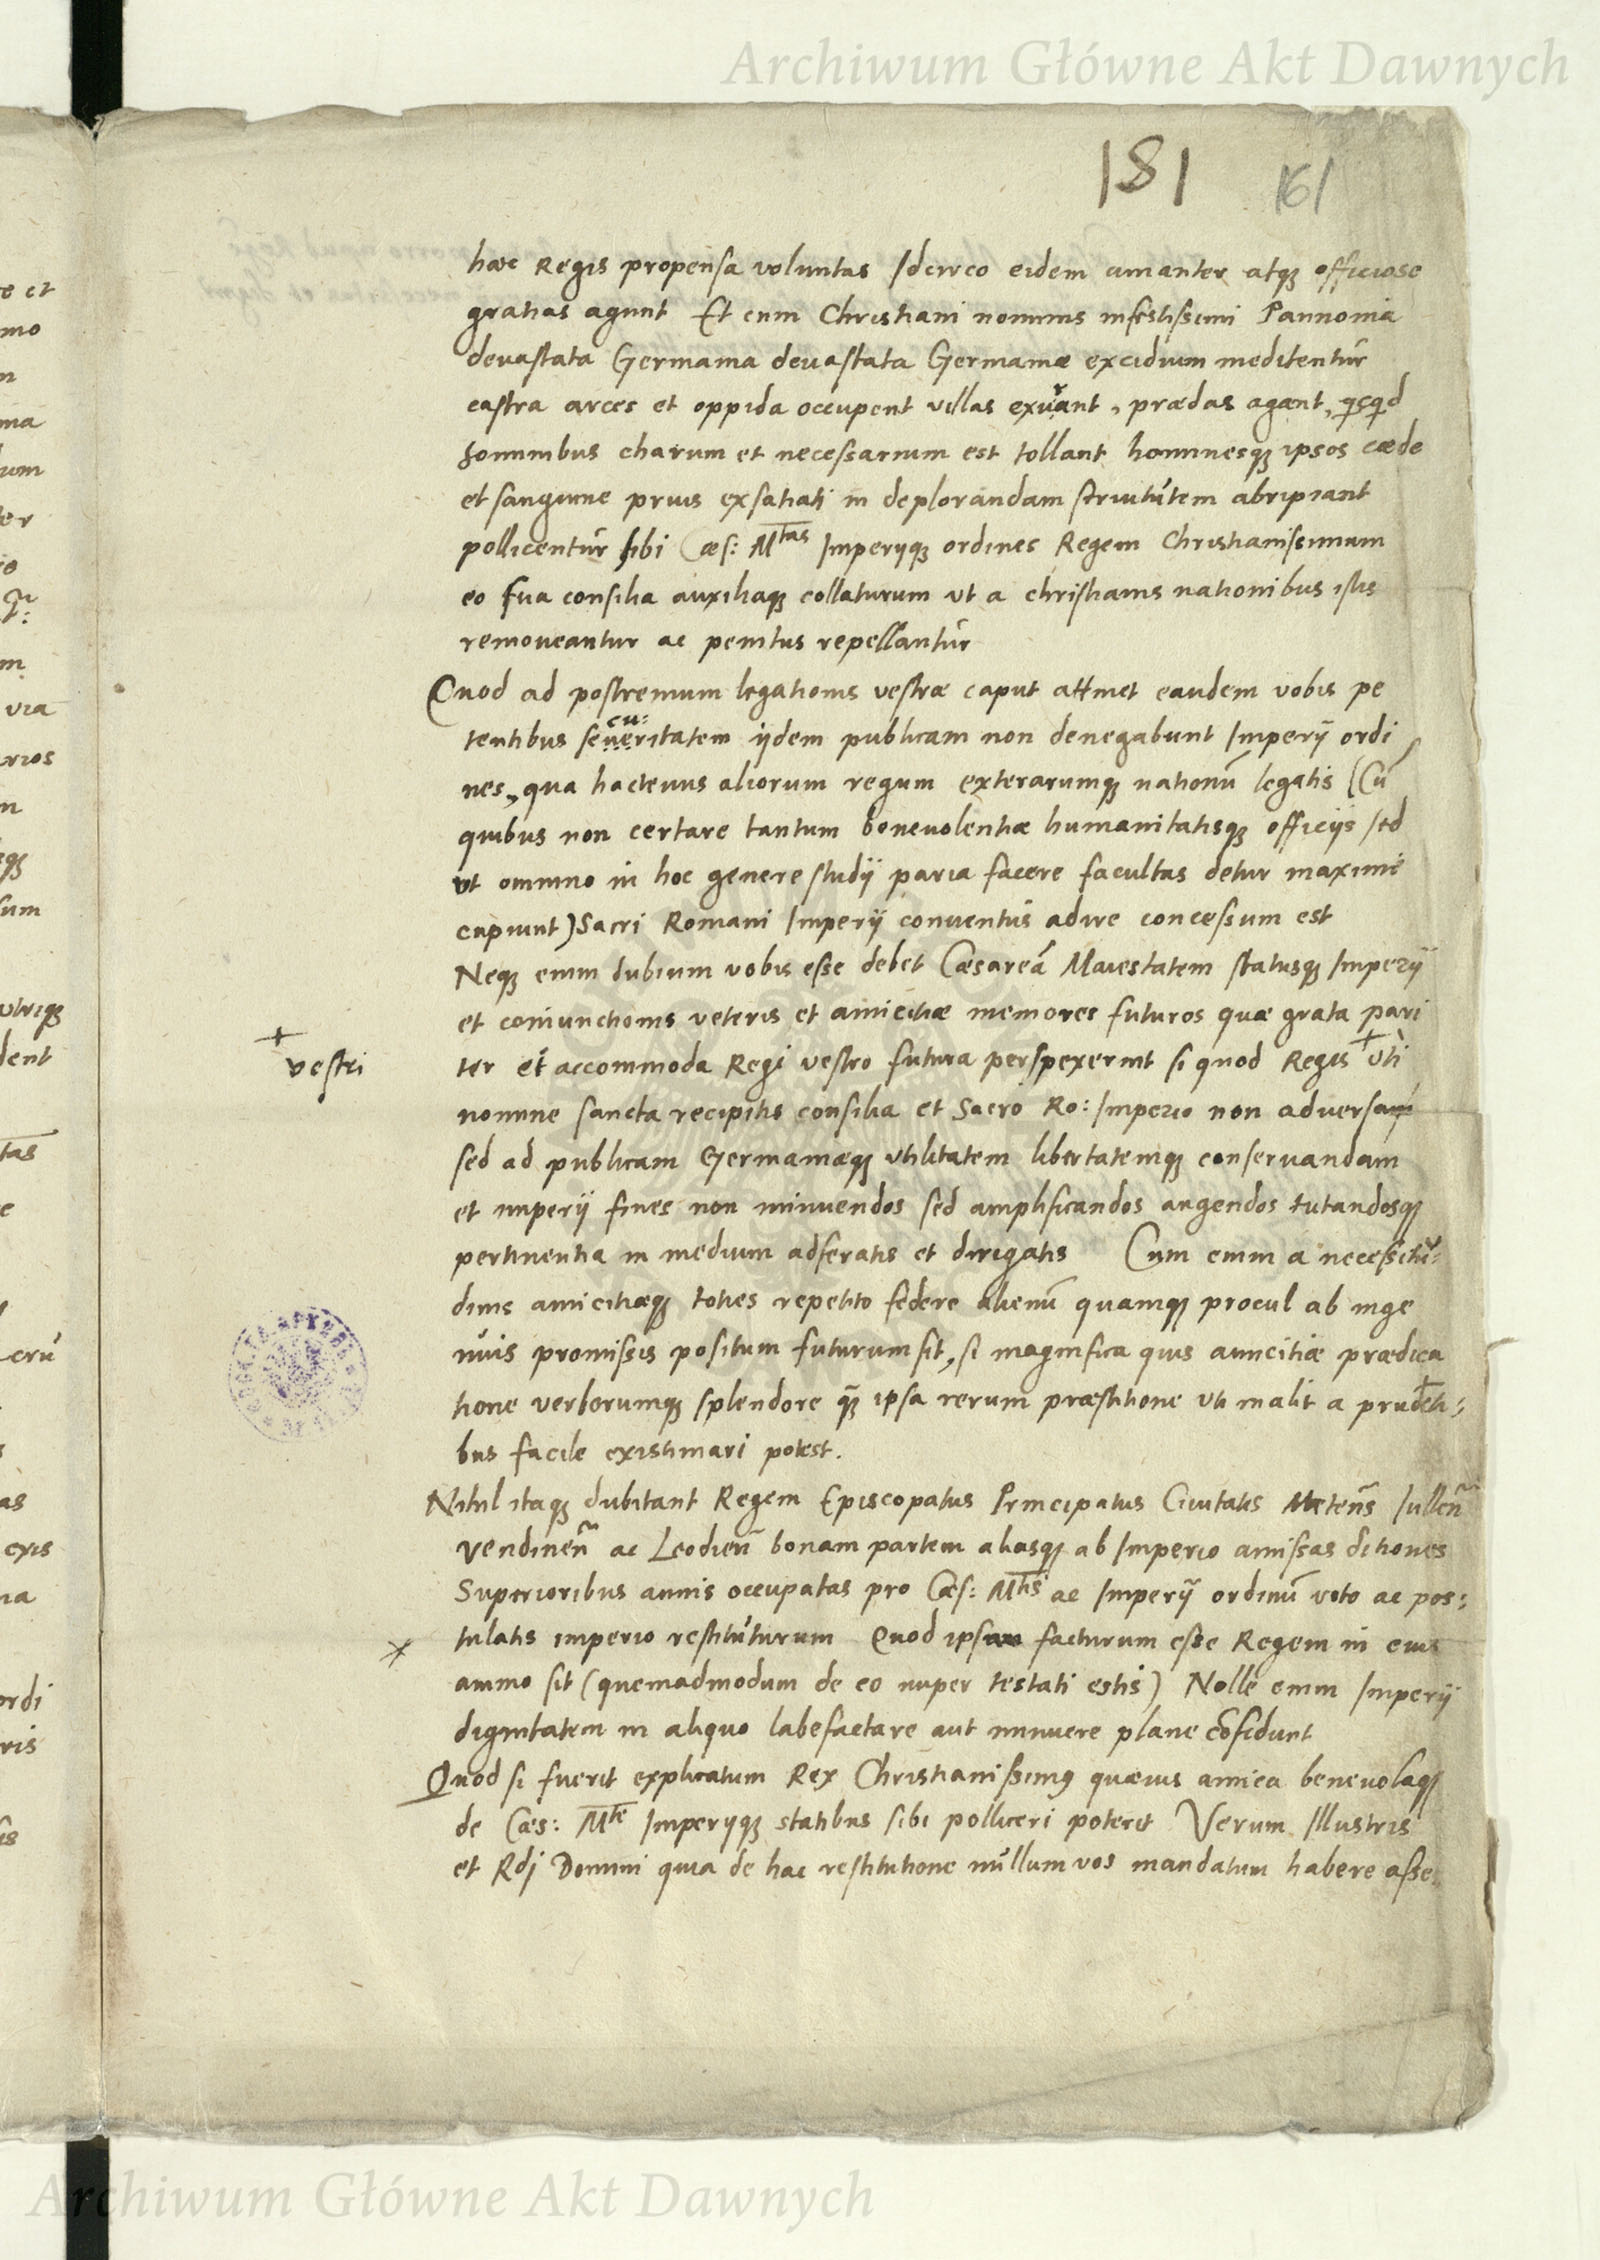 Archiwum Główne Akt Dawnych
181 161
haec Regis propensa voluntas Idcirco eidem amanter atq; officiose
gratias agunt Et cum Christiani nominis infestissimi Pannonia
devastata Germania devastata Germaniæ excidium meditentur
castra arces et oppida occupent villas exurant, prædas agant, qcqd
hominibus charum et necessarium est tollant hominesq; ipsos cæde
et sanguine prius exsatiati in deplorandam servitutem abripiant
pollicentur sibi Cæs: Mtas Imperijq; ordines Regem Christianissimum
eo sua consilia auxiliaq; collaturum vt a christianis nationibus istis
removeantur ac penitus repellantur
Quod ad postremum legationis vestræ caput attinet eandem vobis pe
tentibus securitatem ijdem publicam non denegabunt Imperij ordi
nes, qua hactenus aliorum regum exterarumq; nationū legatis (Cū
quibus non certare tantum benevolentiæ humanitatisq; officijs sed
vt omnino in hoc genere studij paria facere facultas detur maxime
cupiunt) Sacri Romani Imperij conventus adire concessum est
Neq; enim dubium vobis esse debet Cæsareā Maiestatem statusq; Imperij
et coniunctionis veteris et amicitiæ memores futuros quæ grata pari
ter et accommoda Regi vestro futura perspexerint si quod Regis + vti
+
vestri
nomine sancta recipitis consilia et Sacro Ro: Imperio non adversam
sed ad publicam Germaniæq; vtilitatem libertatemq; conservandam
et imperij fines non minuendos sed amplificandos augendos tutandosq;
pertinentia in medium adferatis et dirigatis Cum enim a necessitu:
dinis amicitiæq; toties repetito federe alienū quamq; procul ab inge
nuis promissis positum futurum sit, si magnifica quis amicitiæ prædica
tione verborumq; splendore q̃ ipsa rerum præstitione vti malit a prudēti:
bus facile existimari potest.
Nihil itaq; dubitant Regem Episcopatus Principatus Civitatis Metenš Tullenš
Verdinenš ac Leodienš bonam partem aliasq; ab Imperio amissas ditiones
Superioribus annis occupatas pro Cæs: Mtis ac Imperij ordinū voto ac pos:
tulatis imperio restituturum Quod ipsum facturum esse Regem in eius
animo sit (quemadmodum de eo nuper testati estis) Nolle enim Imperij
dignitatem in aliquo labefactare aut minuere plane cōfidunt
Quod si fuerit explicatum Rex Christianissimus quævis amica benevolaq;
de Cæs: Mte Imperijq; statibus sibi polliceri poterit Verum Illustris
et Rdj Domini quia de hac restitutione nullum vos mandatum habere asse:
Archiwum Główne Akt Dawnych